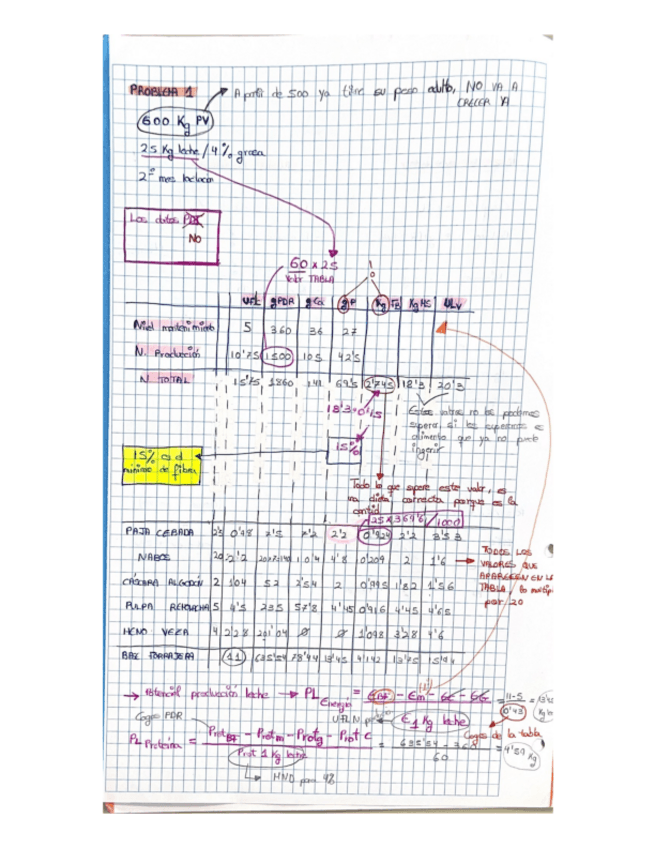 PROBLEMA 1
A partir de 500 ya tiene su peso adulto, NO VA A
CRECER YA
600 Kg PV
25 Kg leche / 4% grasa
2º mes lactación
Los datos PDI
NO
60 x 25
Valor TABLA
UFL gPDR gCa gP Kg FB Kg MS ULV
Nivel mantenimiento 5 360 36 27
N. Producción 10'75 1500 105 42'5
N TOTAL 15'75 1860 141 69'5 2'745 18'3 20'3
18'3 x 0'15
Estos valores no los podemos
superar, si los superamos es
alimento que ya no puede
ingerir
15%
15% es el
mínimo de fibra
Todo lo que supere este valor, es
una dieta correcta porque es la
cantid
25 x 369'6 / 1000
PAJA CEBADA 2'5 0'98 2'5 2'2 0'924 2'2 3'53
NABOS 20 2'2 20x7=140 4'8 0'209 2 1'6
TODOS LOS
VALORES QUE
APARECEN EN LA
TABLA lo multipli
por 20
CÁSCARA ALGODÓN 2 1'04 52 2'54 2 0'995 1'82 1'56
PULPA REMOLACHA 5 4'5 235 57'8 4'45 0'916 4'45 4'65
HENO VEZA 4 2'28 201'04 Ø Ø 1'098 3'28 4'6
RAZ FORRAJERA 11 635'54 78'44 13'45 4'142 13'75 15'94
→ Potencial producción leche → PL Energía = EBF - Em - Ec - EG = 11-5 =
E 1 Kg leche
0'43
Coges PDR
Coges de la tabla
PL Proteína = Prot BF - Prot m - Prot g - Prot c =
Prot 1 Kg leche
60
= 4'59 Kg
MND para 48